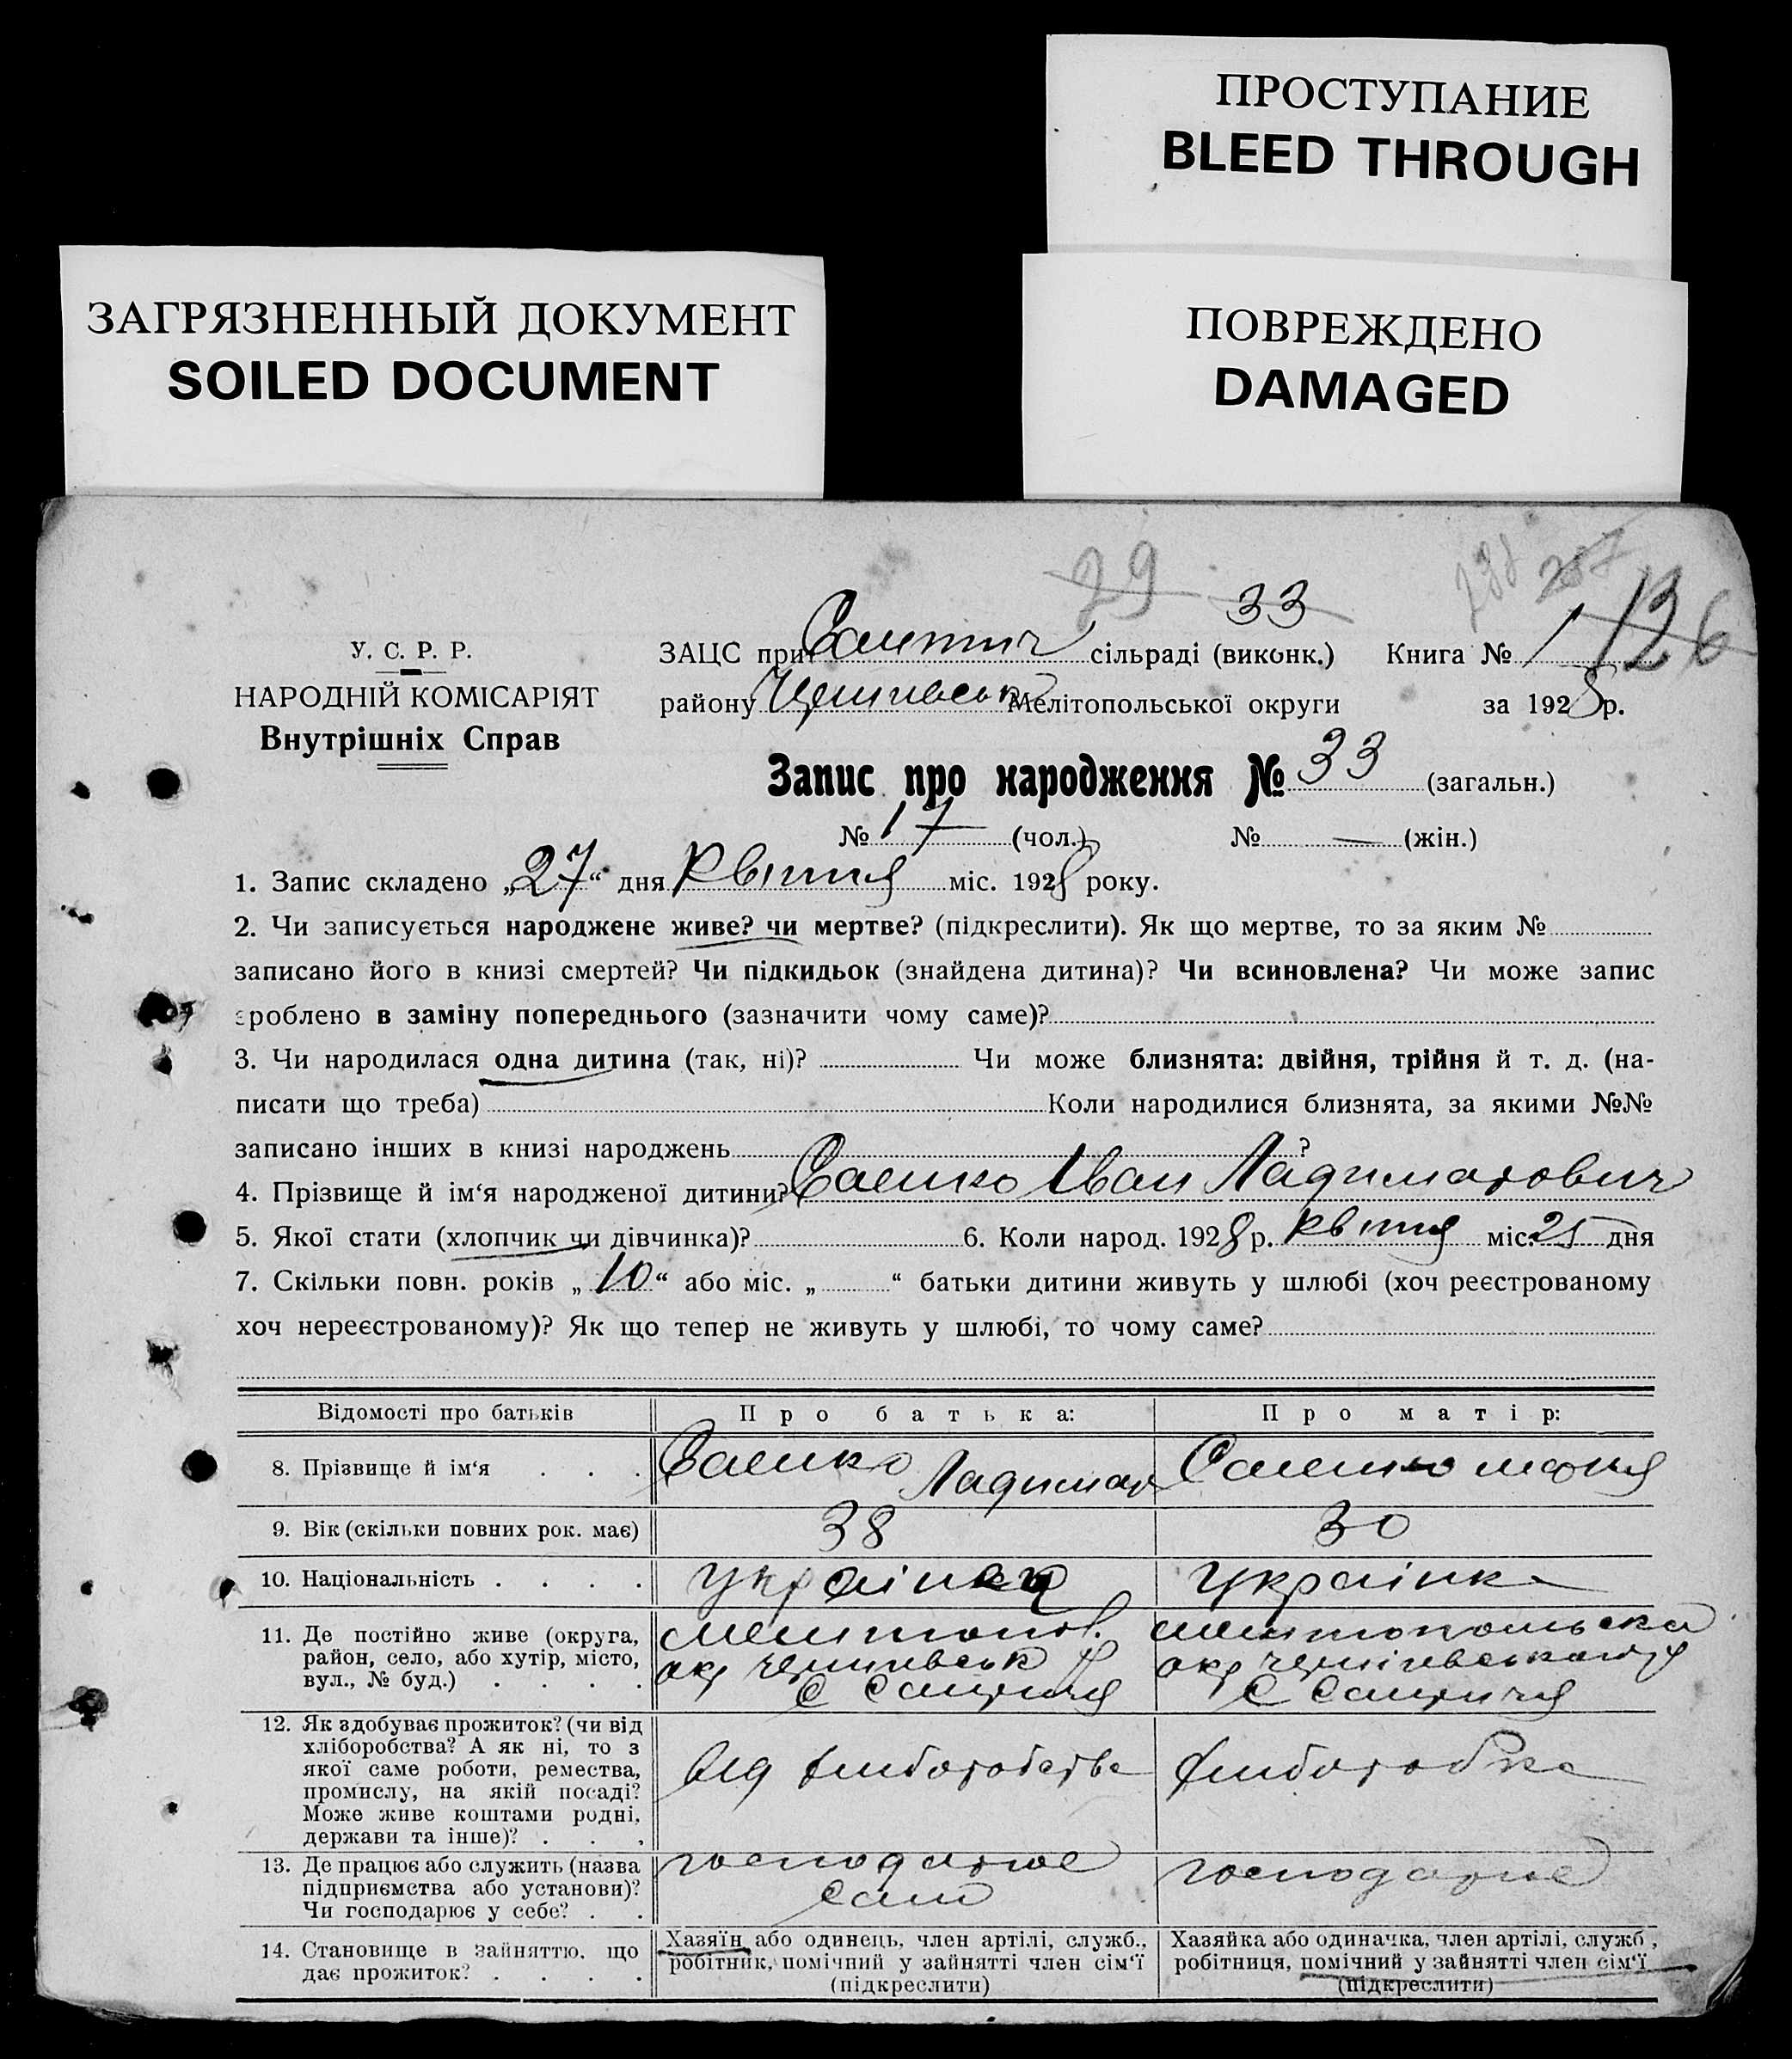 ПРОСТУПАНИЕ
BLEED THROUGH
ЗАГРЯЗНЕННЫЙ ДОКУМЕНТ
SOILED DOCUMENT
ПОВРЕЖДЕНО
DAMAGED
29 33
126
У. С. Р. Р.
НАРОДНІЙ КОМІСАРІЯТ
Внутрішніх Справ
ЗАЦС при сільраді (виконк.) Книга № 1
району Мелітопольської округи за 1928 р.
Запис про народження № 33 (загальн.)
№ 17 (чол.) № — (жін.)
1. Запис складено „27“ дня квітня міс. 1928 року.
2. Чи записується народжене живе? чи мертве? (підкреслити). Як що мертве, то за яким №
записано його в книзі смертей? Чи підкидьок (знайдена дитина)? Чи всиновлена? Чи може запис
зроблено в заміну попереднього (зазначити чому саме)?
3. Чи народилася одна дитина (так, ні)? Чи може близнята: двійня, трійня й т. д. (на-
писати що треба) Коли народилися близнята, за якими №№
записано інших в книзі народжень ?
4. Прізвище й ім‘я народженої дитини? Саенко Іван Ладимарович
5. Якої стати (хлопчик чи дівчинка)? 6. Коли народ. 1928 р. квітня міс. 25 дня
7. Скільки повн. років „10“ або міс. „ “ батьки дитини живуть у шлюбі (хоч реєстрованому
хоч нереєстрованому)? Як що тепер не живуть у шлюбі, то чому саме?
Відомості про батьків Про батька: Про матір:
8. Прізвище й ім‘я . . . Саенко Ладимар Саенко
9. Вік (скільки повних рок. має) 38 30
10. Національність . . . . Украінец Украінка
11. Де постійно живе (округа,
район, село, або хутір, місто,
вул., № буд.) . . . .
12. Як здобуває прожиток? (чи від
хліборобства? А як ні, то з
якої саме роботи, ремества,
промислу, на якій посаді?
Може живе коштами родні,
держави та інше)? . . .
від хліборобства
13. Де працює або служить (назва
підприємства або установи)?
Чи господарює у себе? . .
господарює
сам
господарює
14. Становище в зайняттю, що
дає прожиток? . . . .
Хазяїн або одинець, член артілі, служб.,
робітник, помічний у зайнятті член сім‘ї
(підкреслити)
Хазяйка або одиначка, член артілі, служб.,
робітниця, помічний у зайнятті член сім‘ї
(підкреслити)